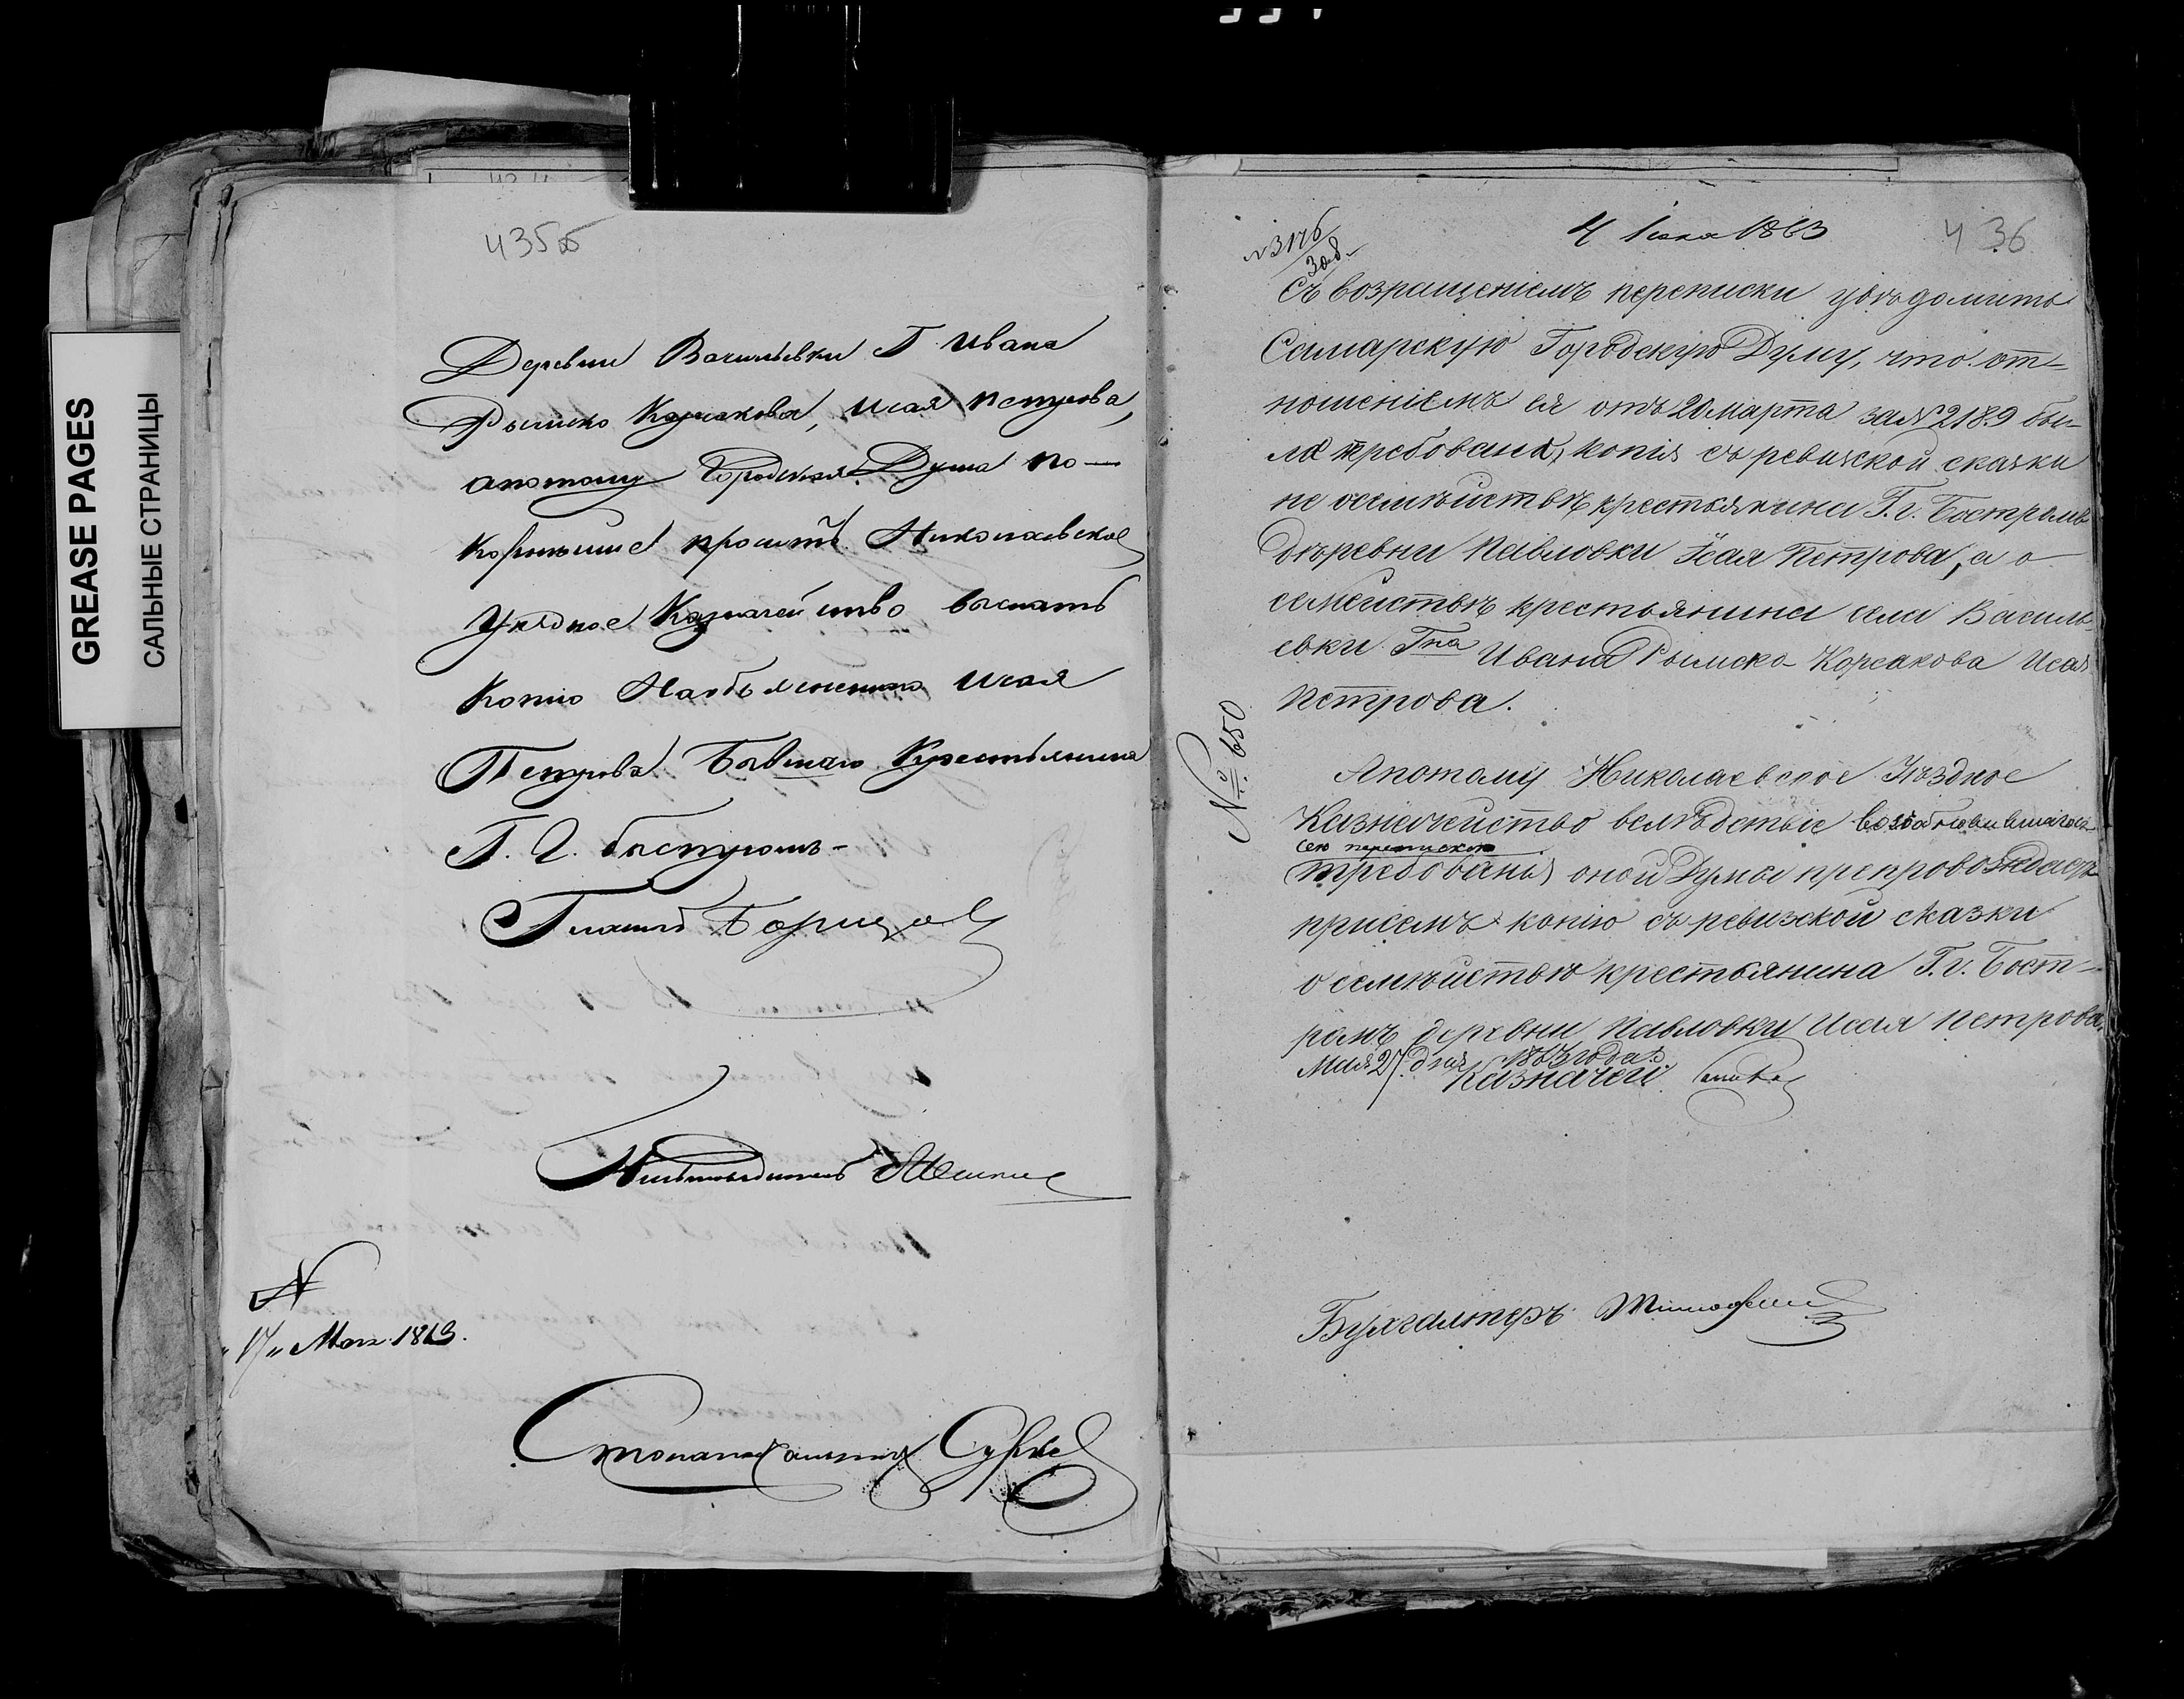 GREASE PAGES
САЛЬНЫЕ СТРАНИЦЫ
435об
Деревни Васильевки Г. Ивана
Римско Карсакова, Исая Петрова,
апотому Городская Дума по-
корнейше проситъ Николаевское
Уѣздное Казначейство выслать
копію Исая
Петрова Бывшаго Крестьянина
Г. Г. Бостромъ-
Гласный
№
"17" Мая 1863.
Столоначальникъ
436
4 Іюня 1863
№ 3176
Съ возращеніемъ переписки увѣдомить
Самарскую Городскую Думу, что от-
ношеніемъ ея отъ 20 марта за № 2189 бы-
ла требована, копія съ ревизской сказки
не осемѣйствѣ крестьянина Г. г. Бострамъ
дѣревни Павловки Исая Петрова, а о
семействѣ крестьянина села Василь-
евки Гна Ивана Римско-Корсакова Исая
Петрова.
№ 650
Апотому Николаевское Уѣздное
Казначейство вслѣдствіе возобновившагося
сею перепискою
требованія оной Думы препровождаетъ
присемъ копію съ ревизской сказки
о семѣйствѣ крестьянина Г. г. Бост-
рамъ деревни Павловки Исая Петрова.
Мая 27 дня 1863 года
Казначей
Бухгалтеръ